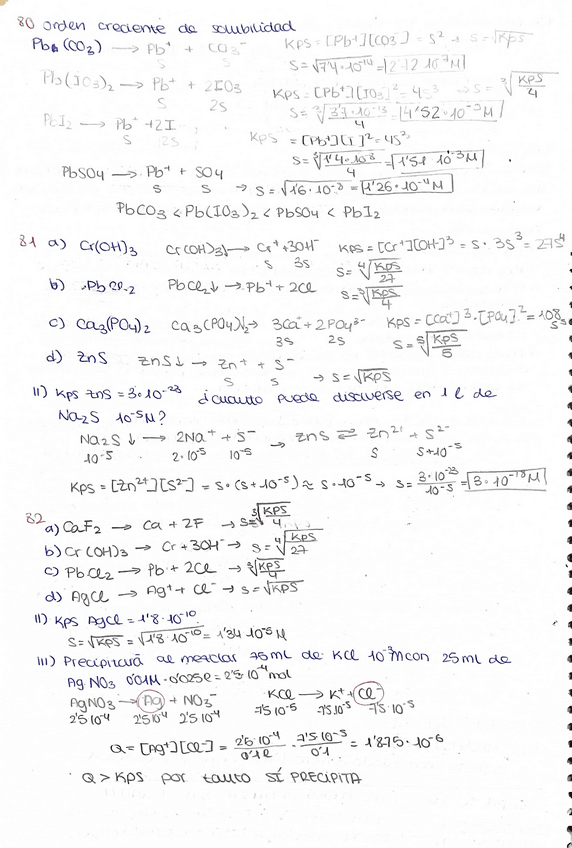 80 Orden creciente de solubilidad
Pb(CO3) → Pb⁺ + CO3⁻ KPS = [Pb⁺][CO3⁻] = S² → S = √KPS
S S S = √7'4·10⁻¹⁴ = 2'72 10⁻⁷M
Pb(IO3)2 → Pb⁺ + 2IO3 KPS = [Pb⁺][IO3]² = 4S³ → S = ³√KPS/4
S 2S S = ³√3'7·10⁻¹³/4 = 4'52·10⁻⁵M
PbI2 → Pb⁺ + 2I KPS = [Pb⁺][I]² = 4S³
S 2S S = ³√1'4·10⁻⁸/4 = 1'51 10⁻³M
PbSO4 → Pb⁺ + SO4 → S = √1'6·10⁻⁸ = 1'26·10⁻⁴M
S S
PbCO3 < Pb(IO3)2 < PbSO4 < PbI2
81 a) Cr(OH)3 Cr(OH)3↓ → Cr⁺ + 3OH⁻ KPS = [Cr⁺][OH⁻]³ = S·3S³ = 27S⁴
S 3S S = ⁴√KPS/27
b) PbCl2 PbCl2↓ → Pb⁺ + 2Cl S = ³√KPS/4
c) Ca3(PO4)2 Ca3(PO4)2↓ → 3Ca⁺ + 2PO4³⁻ KPS = [Ca⁺]³·[PO4]² = 108 S⁵
3S 2S S = ⁵√KPS/5
d) ZnS ZnS↓ → Zn⁺ + S⁻
S S → S = √KPS
II) KPS ZnS = 3·10⁻²³ ¿cuanto puede disolverse en 1 l de
Na2S 10⁻⁵M?
Na2S↓ → 2Na⁺ + S⁻ → ZnS ⇌ Zn²⁺ + S²⁻
10⁻⁵ 2·10⁻⁵ 10⁻⁵ S S+10⁻⁵
KPS = [Zn²⁺][S²⁻] = S·(S+10⁻⁵) ≈ S·10⁻⁵ → S = 3·10⁻²³/10⁻⁵ = 3·10⁻¹⁸M
82
a) CaF2 → Ca + 2F → S = ³√KPS/4
b) Cr(OH)3 → Cr + 3OH⁻ → S = ⁴√KPS/27
c) PbCl2 → Pb + 2Cl → ³√KPS/4
d) AgCl → Ag⁺ + Cl⁻ → S = √KPS
II) KPS AgCl = 1'8·10⁻¹⁰
S = √KPS = √1'8·10⁻¹⁰ = 1'34 10⁻⁵M
III) Precipitará al mezclar 75ml de KCl 10⁻³M con 25ml de
AgNO3 0'01M·0'025l = 2'5·10⁻⁴mol
AgNO3 → Ag + NO3⁻ KCl → K⁺ + Cl⁻
2'5 10⁻⁴ 2'5 10⁻⁴ 2'5 10⁻⁴ 7'5 10⁻⁵ 7'5 10⁻⁵ 7'5·10⁻⁵
Q = [Ag⁺][Cl⁻] = 2'5·10⁻⁴/0'1l · 7'5·10⁻⁵/0'1 = 1'875·10⁻⁶
Q > KPS por tanto SÍ PRECIPITA